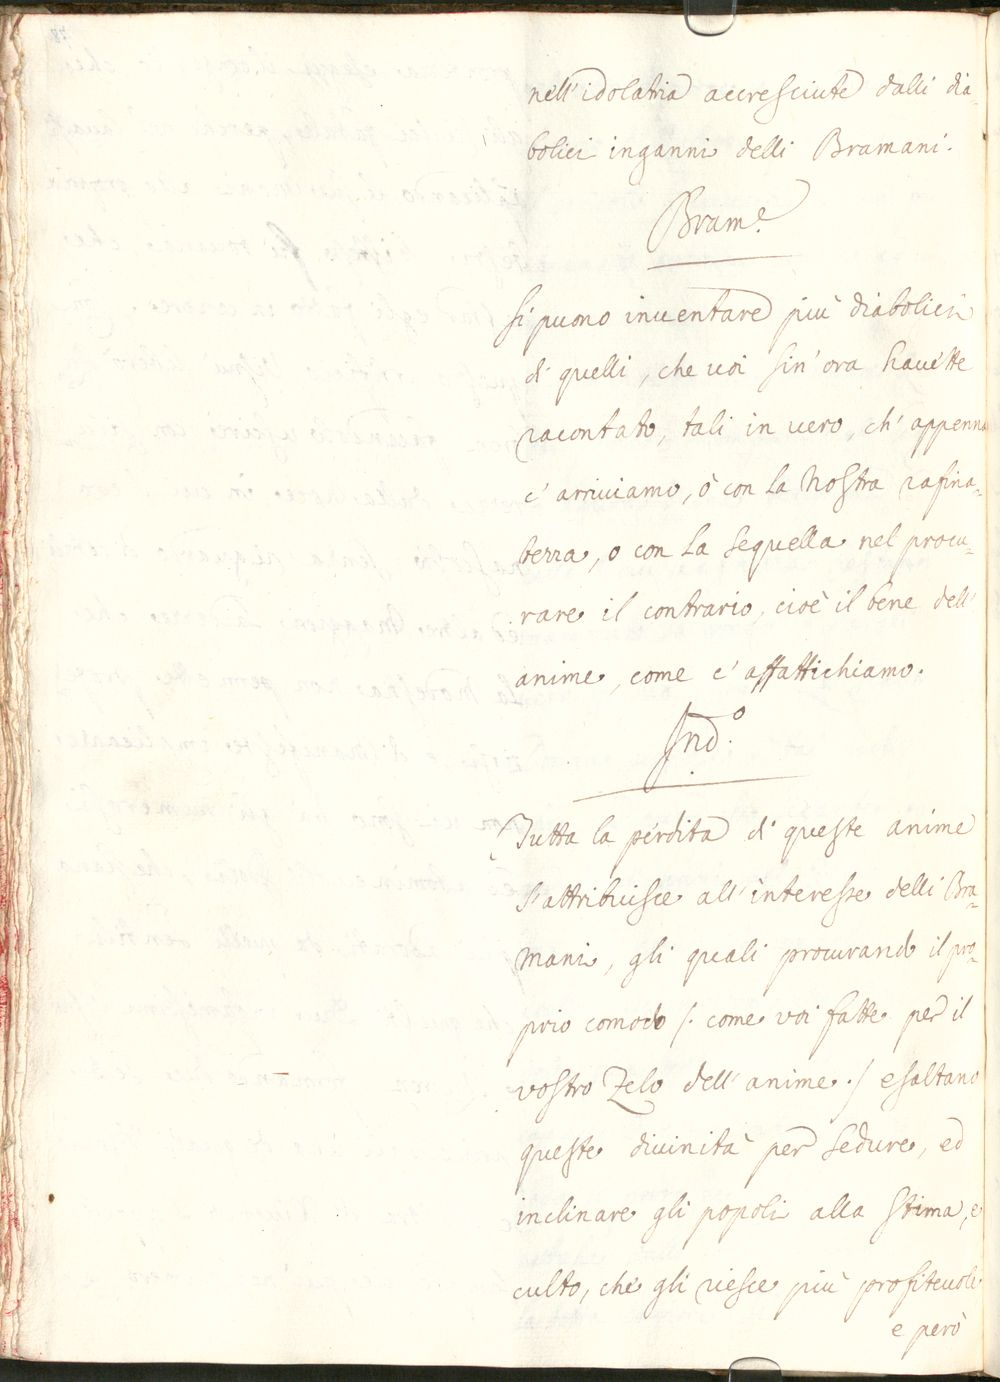 nell'idolatria accresciute dalli dia-
bolici inganni delli Bramani.
Bram.e
Si puono inventare più diabolici
di quelli, che voi sin'ora havétte
racontato, tali in vero, ch'appenna
c'arriviamo, ò con la Nostra rafina-
tezza, o con la sequella nel procu-
rare il contrario, cioè il bene dell'
anime, come c'affattichiamo.
Ind.o
Tutta la pérdita di queste anime
s'attribuisce all'interesse delli Bra-
mani, gli quali procurando il pro-
prio comodo /. come voi fatte per il
vostro Zelo dell'anime. / esaltano
queste divinità per sedure, ed
inclinare gli popoli alla stima, e
culto, che gli riesce più profitevole
e però